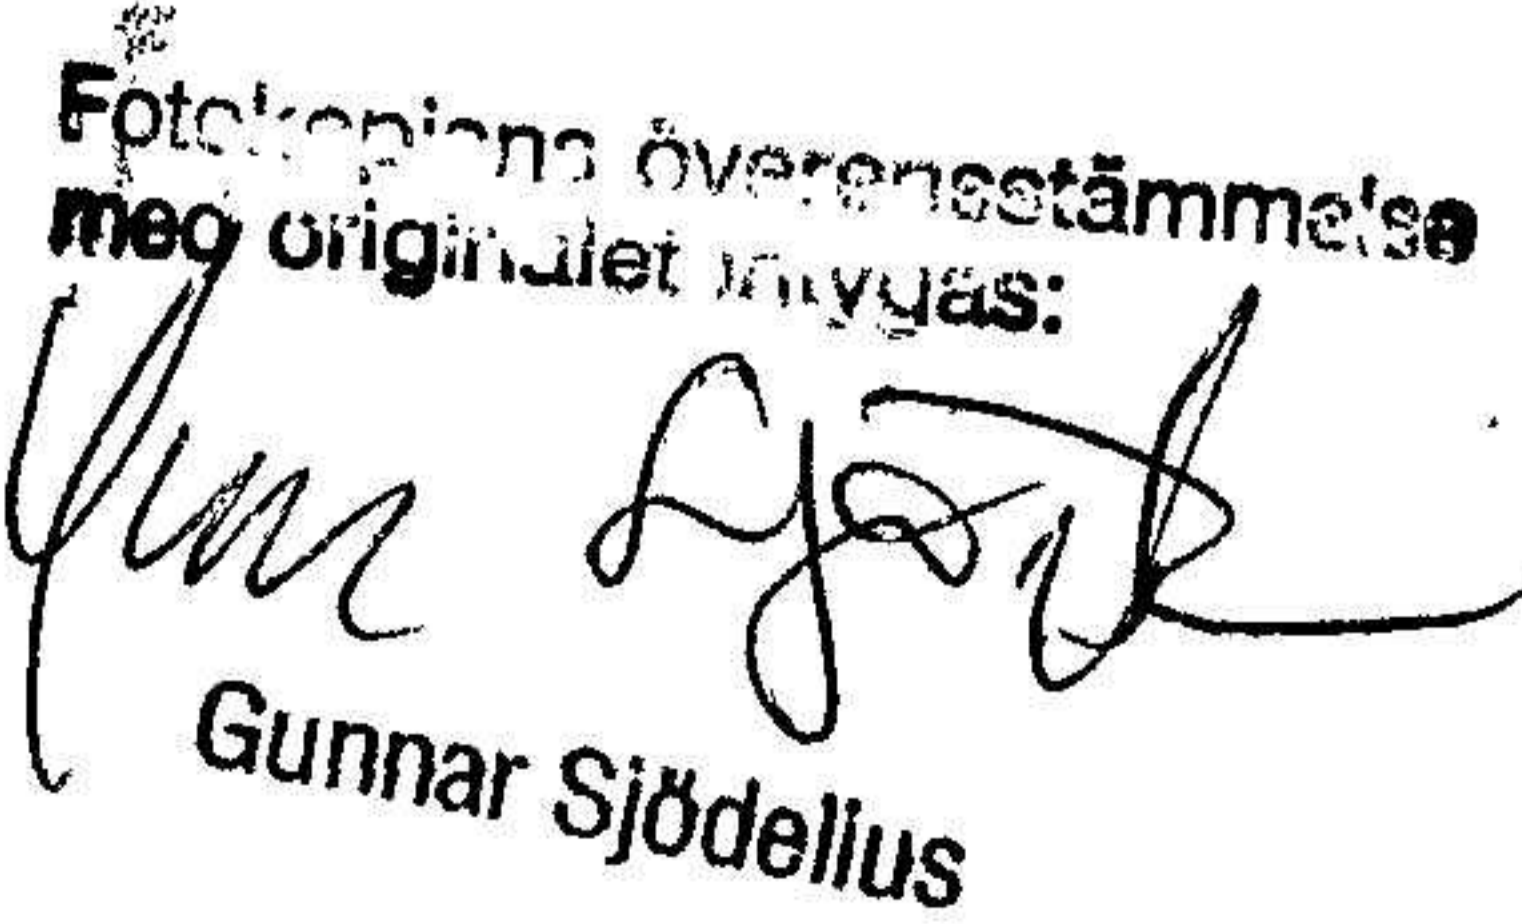 Fotokopians överensstämmelse
med originalet intygas:
Gunnar Sjödelius